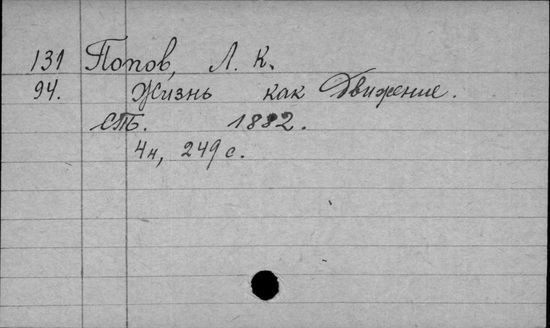 131 Попов, Л. К.
94. Жизнь как Движение.
СПБ. 1882.
4н, 249 с.